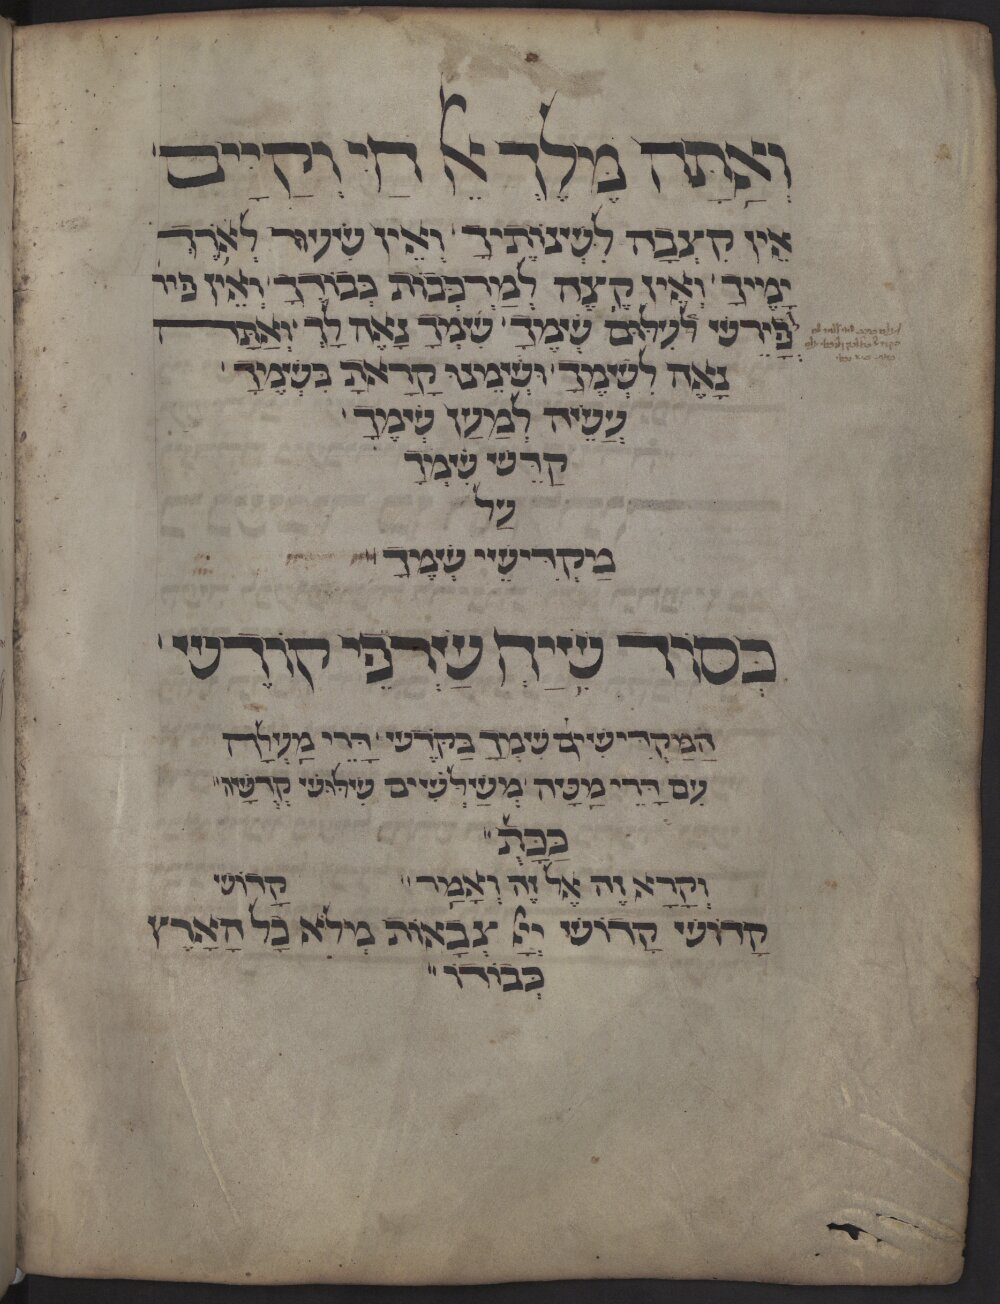 וְאַתָּה מֶלֶךְ אֵל חַי וְקַיָּים׳
אֵין קִצְבָה לִשְׁנוֹתֶיךָ׳ וְאֵין שִׁעוּר לְאֹרֶךְ
יָמֶיךָ׳ וְאֵין קֶצֶה לְמַרְכְּבוֹת כְּבוֹדֶךָ׳ וְאֵין פיר
פֵּירֵשׁ לְעִלּוּם שְׁמֶךָ׳ שִׁמְךָ נָאֶה לָךְ׳ וְאַתָּה
נָאֶה לִשְׁמֶךָ׳ וּשְׁמֵינוּ קָרָאתָ בִּשְׁמֶךָ׳
עֲשֵׂיה לְמַעַן שְׁמֶךָ׳
קַדֵּשׁ שִׁמְךָ
עַל
מַקְדִּישֵׁי שְׁמֶךָ׃
כְּסוֹד שִׂיחַ שַׂרְפֵי קוֹדֶשׁ׳
הַמַּקְדִּישִׁים שִׁמְךָ בַּקֹּדֶשׁ׳ דָּרֵי מַעְלָה
עִם דָּרֵי מַטָּה׳ מְשַׁלְּשִׁים שִׁלּוּשׁ קְדֻשָּׁה״
כַּכָּתֻ״
וְקָרָא זֶה אֶל זֶה וְאָמַר״ קָדוֹשׁ
קָדוֹשׁ קָדוֹשׁ יְיָ צְבָאוֹת מְלֹא כָל הָאָרֶץ
כְּבוֹדוֹ״